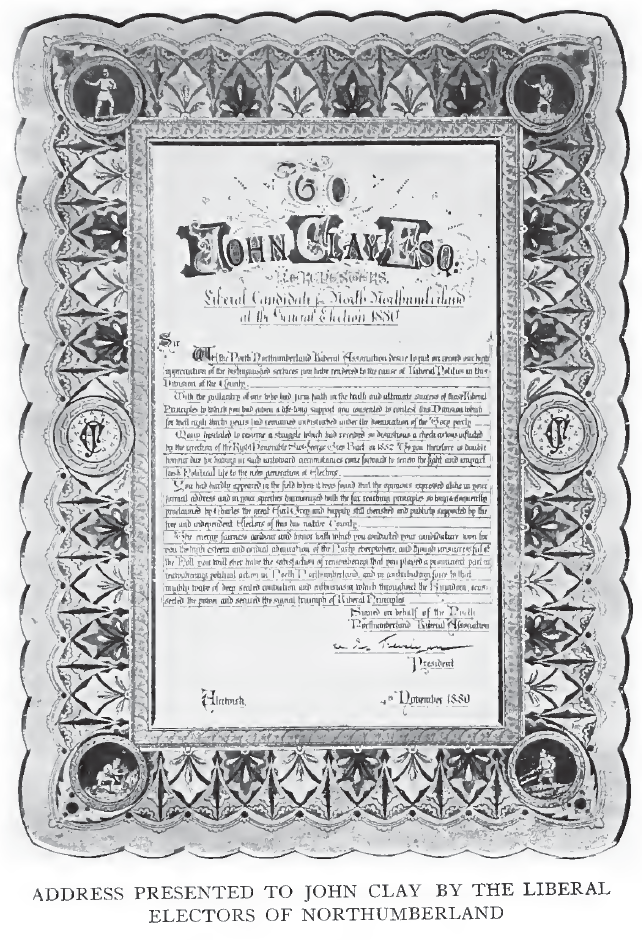 TO
JOHN CLAY, ESQ.
KERCHESTERS.
Liberal Candidate for North Northumberland
at the General Election 1880
Sir
We the North Northumberland Liberal Association desire to put on record our high
appreciation of the distinguished services you have rendered to the cause of Liberal Politics in this
Division of the County.
With the gallantry of one who had firm faith in the truth and ultimate success of those Liberal
Principles to which you had given a life-long support you consented to contest this Division which
for well nigh thirty years had remained undisturbed under the domination of the Tory party.
Many hesitated to resume a struggle which had received so disastrous a check as was inflicted
by the rejection of the Right Honourable Sir George Grey Bart in 1852. To you therefore is double
honour due for having in such untoward circumstances come forward to renew the fight and impart
fresh Political life to the new generation of electors.
You had hardly appeared in the field when it was found that the opinions expressed alike in your
formal address and in your speeches harmonized with the far reaching principles so long & eloquently
proclaimed by Charles the great Earl Grey and happily still cherished and publicly supported by the
free and independent Electors of this his native County.
The energy fairness ardour and honor with which you conducted your candidature won for
you the high esteem and cordial admiration of the Party everywhere, and though unsuccessful at
the Poll you will ever have the satisfaction of remembering that you played a prominent part in
reawakening political action in North Northumberland, and in contributing force to that
mighty wave of deep seated conviction and enthusiasm which throughout the Kingdom,
the power and secured the signal triumph of Liberal Principles
Signed on behalf of the North
Northumberland Liberal Association
President
Alnwick, November 1880
ADDRESS PRESENTED TO JOHN CLAY BY THE LIBERAL
ELECTORS OF NORTHUMBERLAND